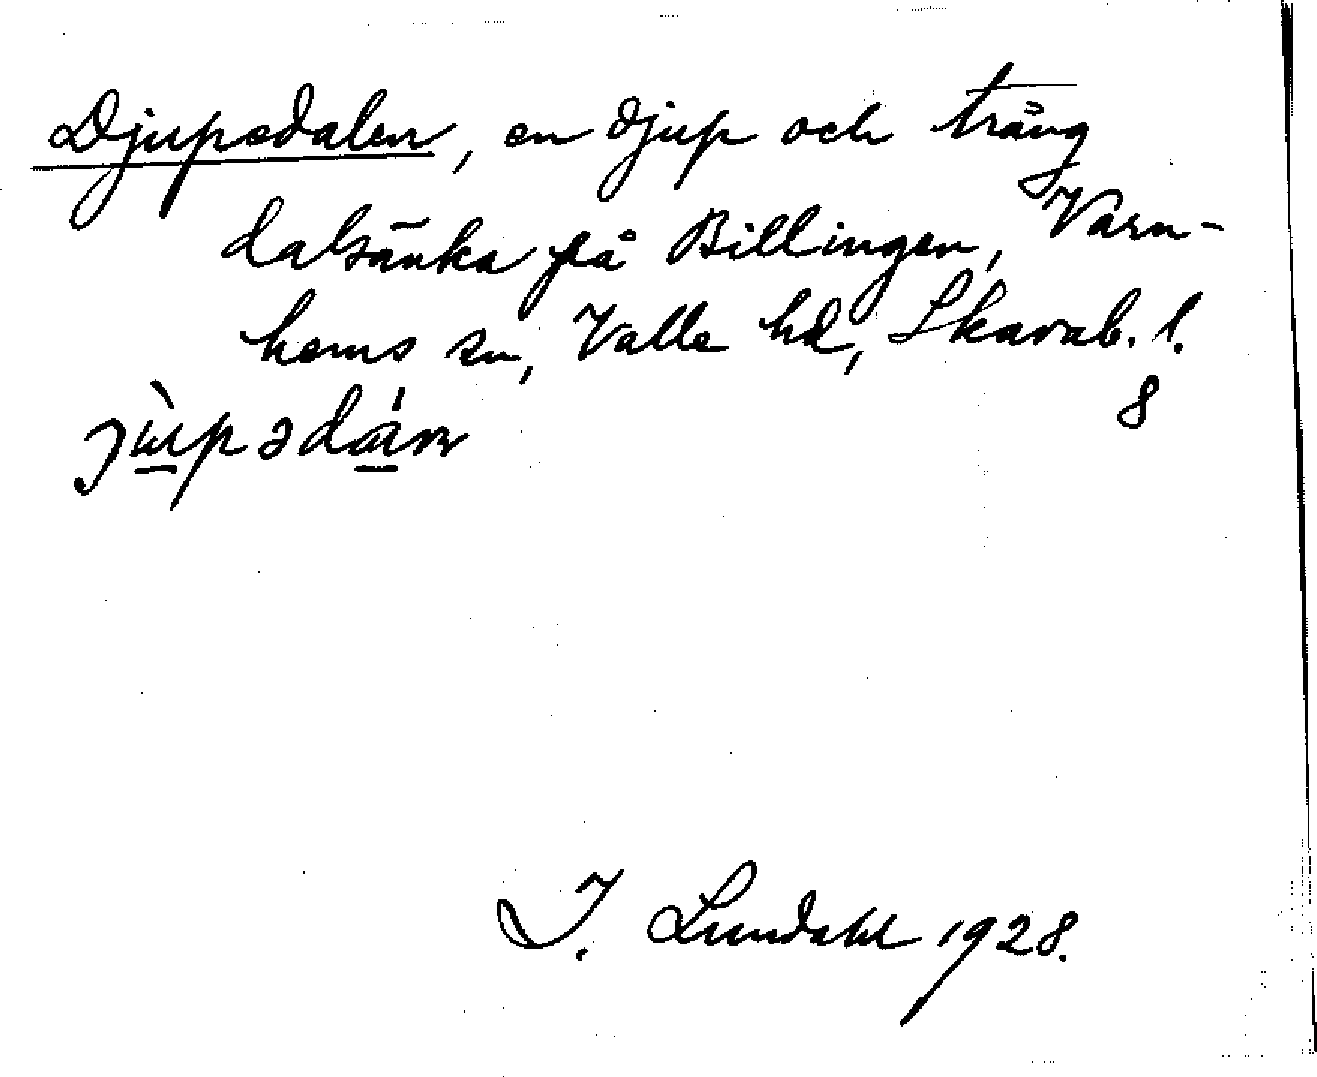 Djupedalen, en djup och trång
dalsänka på Billingen, Varn-
hems sn, Valle hd, Skarab. l.
8
I. Lundahl 1928.